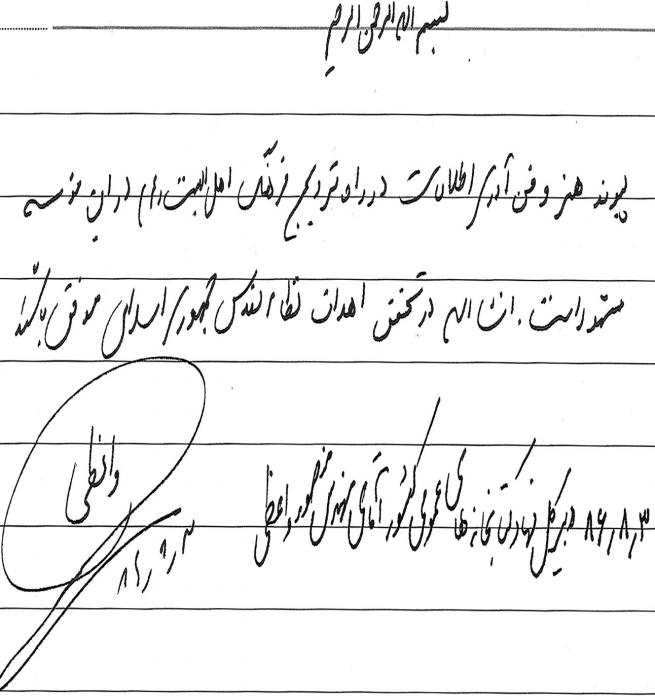 بسم الله الرحمن الرحیم
پیوند هنر و فن آوری اطلاعات در راه ترویج فرهنگ اهل البیت (ع) در این موسسه
مشهود است. انشاء الله در تحقق اهداف نظام مقدس جمهوری اسلامی موفق باشند
۸۶٫۸٫۳ دبیر کل نهاد کتابخانه های عمومی کشور آقای مهندس منصور واعظی
واعظی